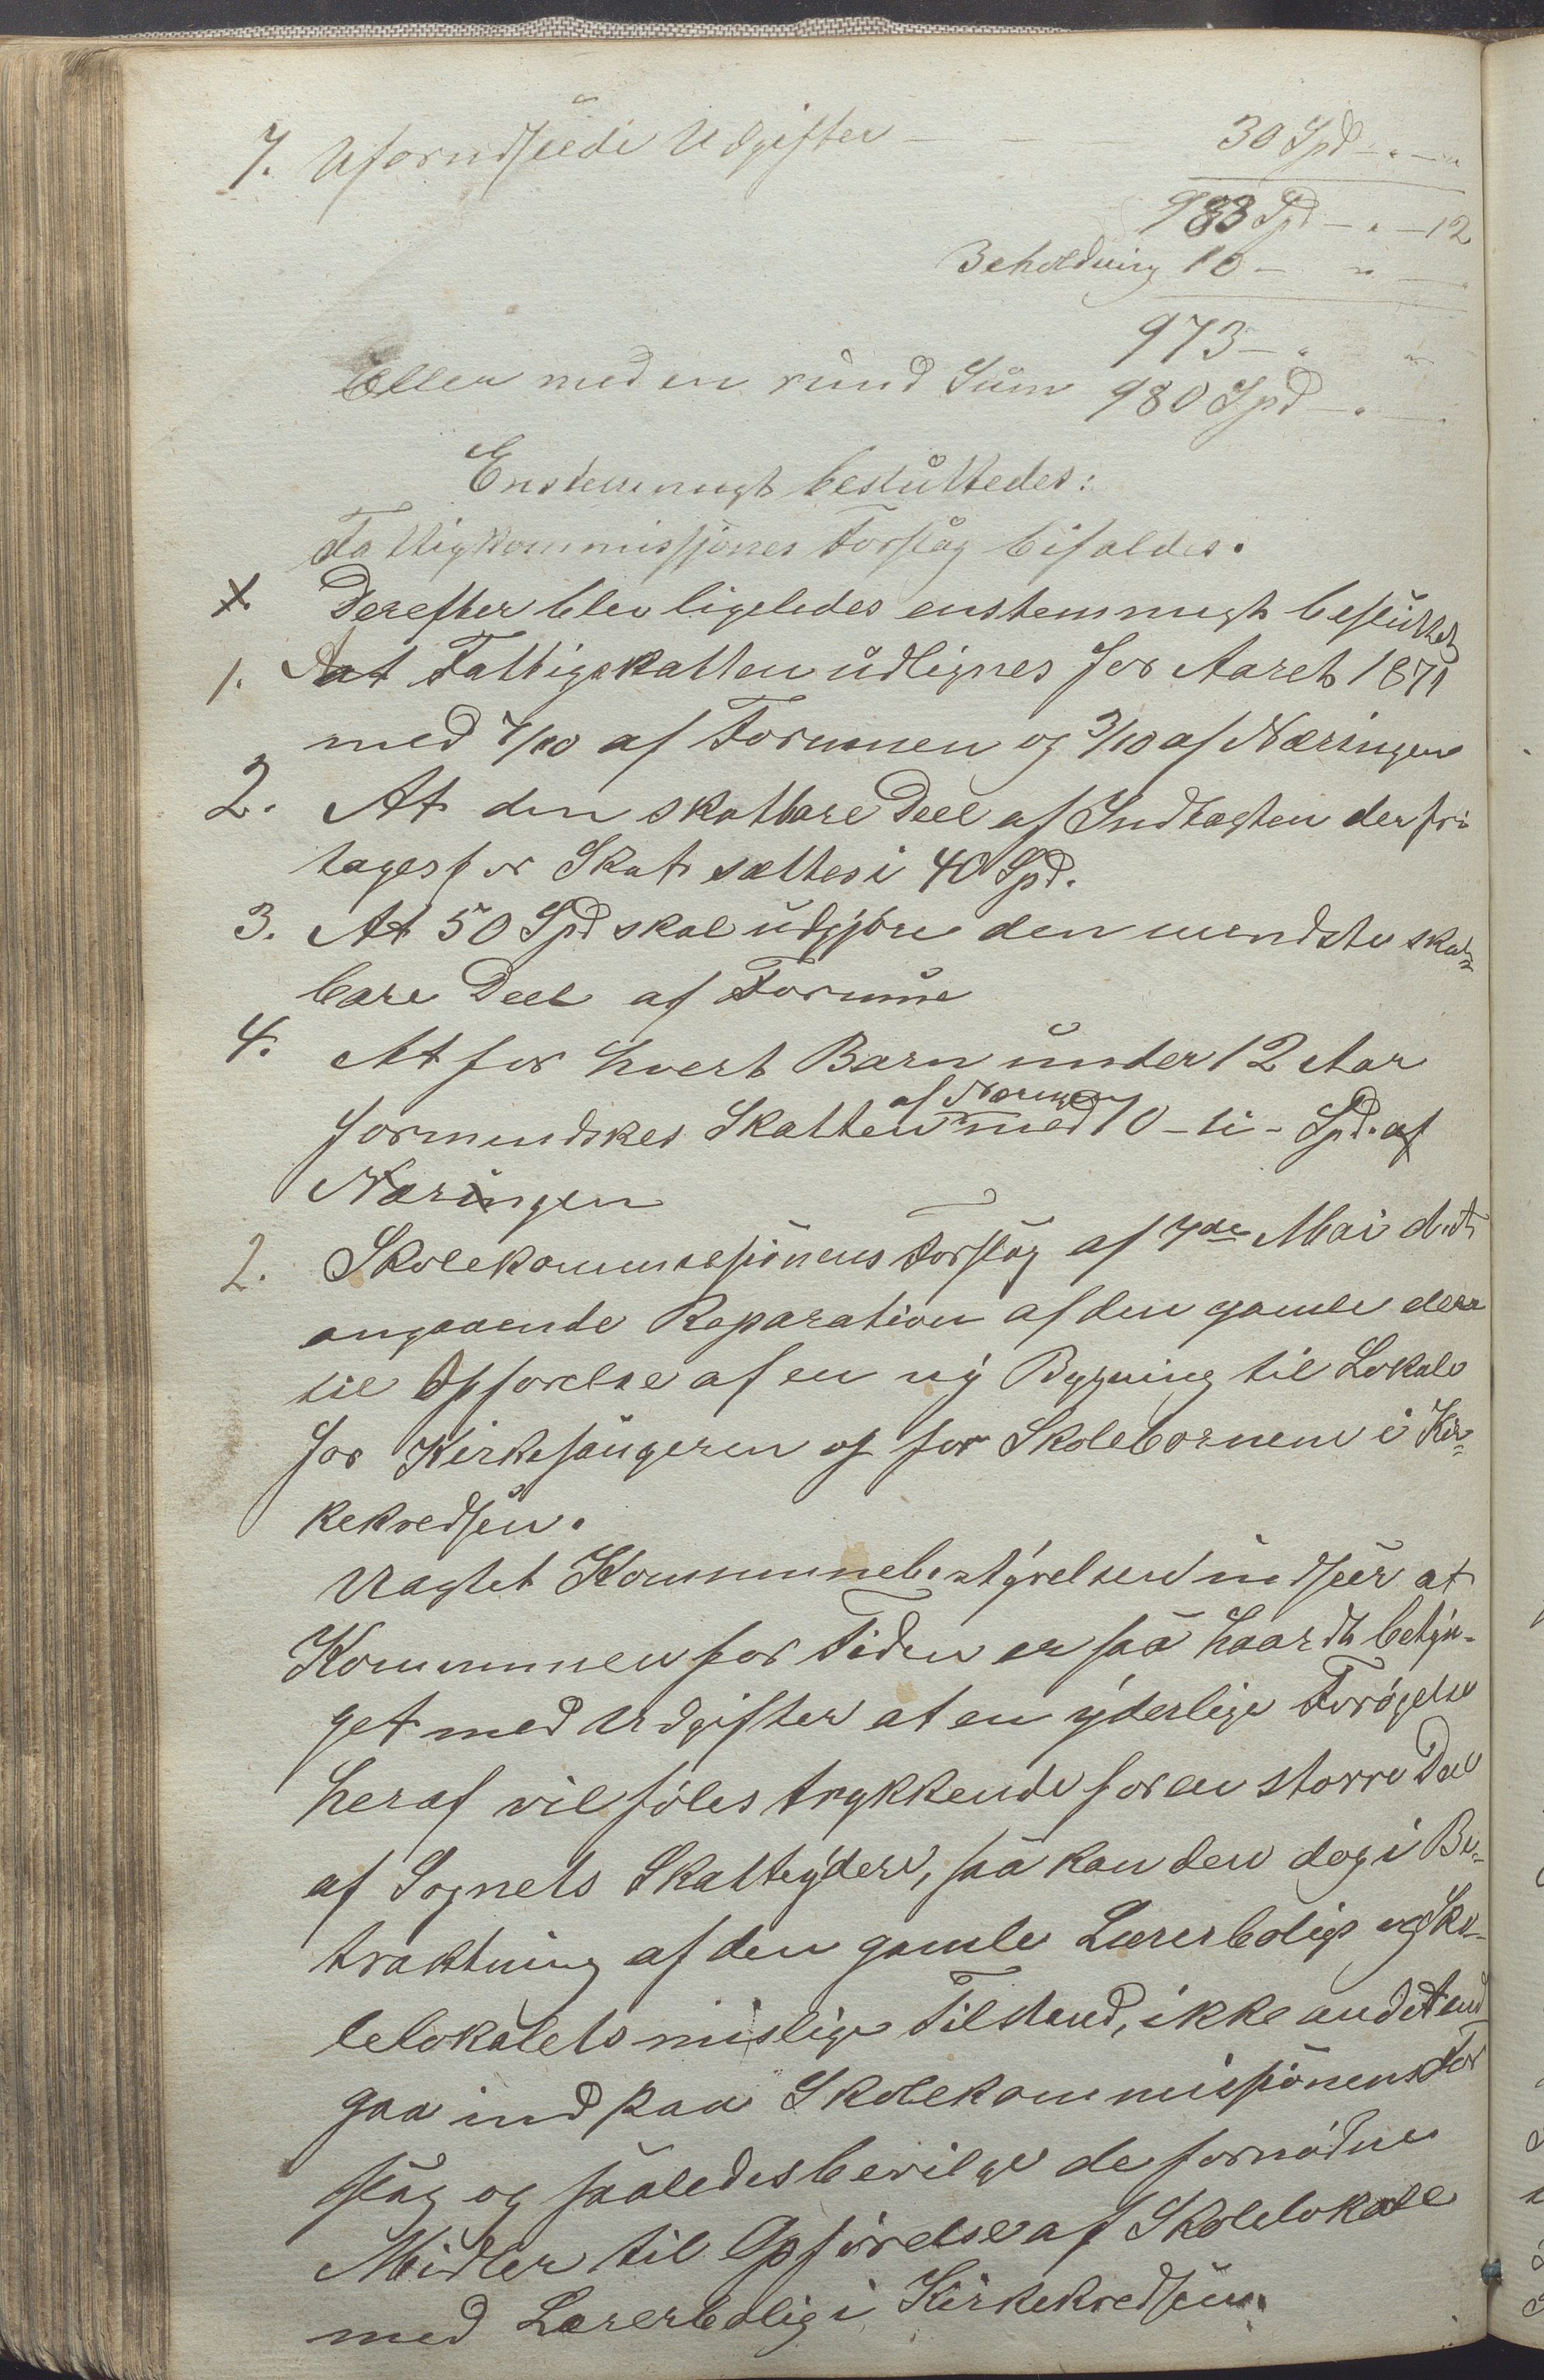 7. Uforudseede Udgifter — — — 30 Spd — " — "
983 Spd — " — 12
Beholdning 10 — " —
973 — " "
Eller med en rund Sum 980 Spd — " —
Enstemmigt besluttedes:
Fattigkommissjones Forslag bifaldes.
Derefter blev ligeledes enstemmigt besluttet
1. At Fattigskatten udlignes for Aaret 1871
med 7/10 af Formuen og 3/10 af Næringen
2. At den skatbare Deel af Indtægten der fri
tages for Skat sættes i 40 Spd.
3. At 50 Spd skal udgjøre den mindste skat=
bare Deel af Formue
4. At for hvert Barn under 12 Aar
formindskes Skatten af Næringen med 10 - ti - Spd. af
Næringen
2. Skolekommissionens Forslag af 7de Mai d.A
angaaende Reparation af den gamle eller
til Opførelse af en ny Bygning til Lokale
for Kirkesangeren og for Skolebørnene i Kir=
kekredsen.
Uagtet Kommunebestyrelsen indseer at
Kommunen for Tiden er saa haardt betyn-
get med Udgifter at en yderlige Forøgelse
heraf vil føles trykkende for en større Del
af Sognets Skatteydere, saa kan den dog i Be=
traktning af den gamle Lærerbolig og Sko-
lelokalets mislige Tilstand, ikke andet end
gaa ind paa Skolekommissionens For
slag og saaledes bevilge de fornødne
Midler til Opførelse af Skolelokale
med Lærerbolig i Kirkekredsen.